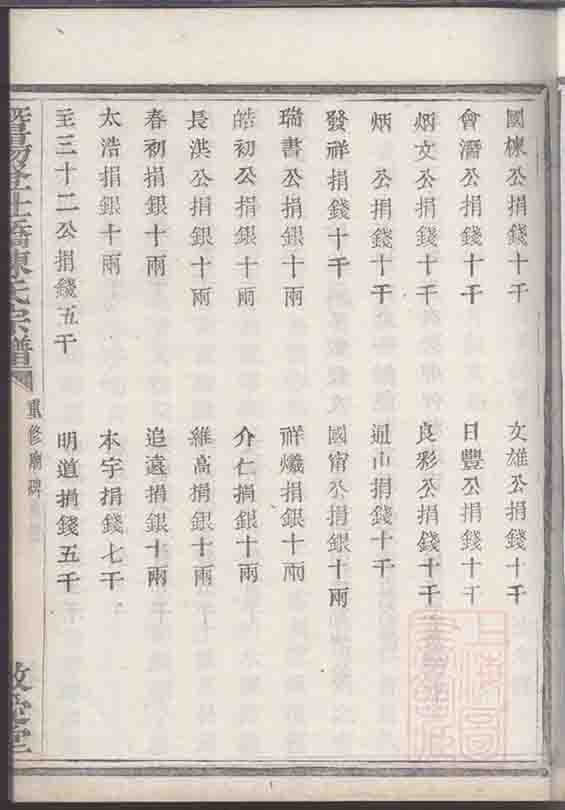 國棟公捐錢十千
文雄公捐錢十千
會濳公捐錢十千
日豐公捐錢十千
炳文公捐錢十千
良彩公捐錢十千
炳 公捐錢十千
迴山捐錢十千
發祥捐錢十千
國甯公捐銀十兩
瑞書公捐銀十兩
祥熾捐銀十兩
皓初公捐銀十兩
介仁捐銀十兩
長洪公捐銀十兩
維高捐銀十兩
春初捐銀十兩
追遠捐銀十兩
太浩捐銀十兩
本宇捐錢七千
主三十二公捐錢五千
明道捐錢五千
橋陳氏宗譜
重修廟碑
敬愛堂
上海圖書館藏